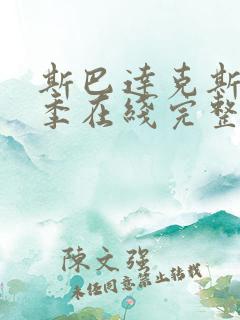 斯巴达克斯
季在线完整
陈文强
未经同意禁止转载